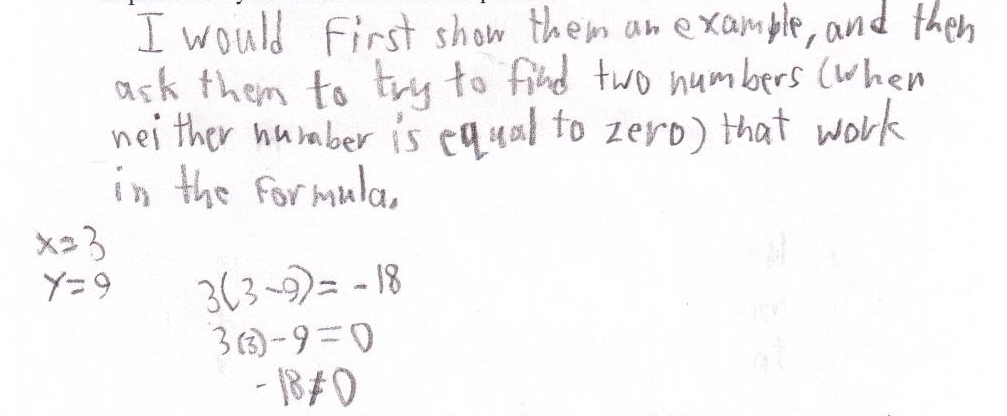 I would first show them an example, and then
ask them to try to find two numbers (when
neither number is equal to zero) that work
in the formula.
x=3
y=9
3(3-9)= -18
3(3)-9=0
-18≠0